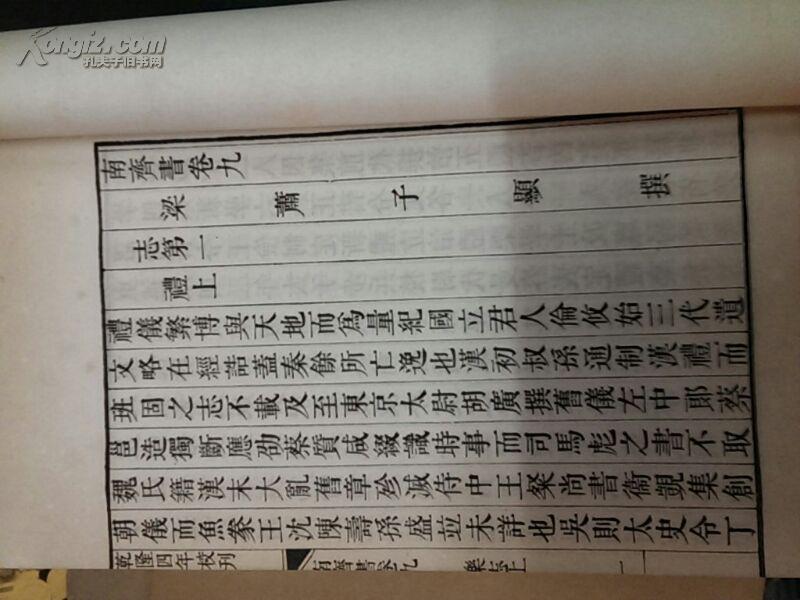 Kongfz.com
孔夫子旧书网
南齊書卷九
梁蕭子顯撰
志第一
禮上
禮儀繁博與天地而爲量紀國立君人倫攸始三代遺
文略在經誥蓋秦餘所亡逸也漢初叔孫通制漢禮而
班固之志不載及至東京太尉胡廣撰舊儀左中郞蔡
邕造獨斷應劭蔡質咸綴識時事而司馬彪之書不取
魏氏籍漢末大亂舊章殄滅侍中王粲尚書衞覬集創
朝儀而魚豢王沈陳壽孫盛竝未詳也吳則太史令丁
乾隆四年校刊
南齊書卷九
一